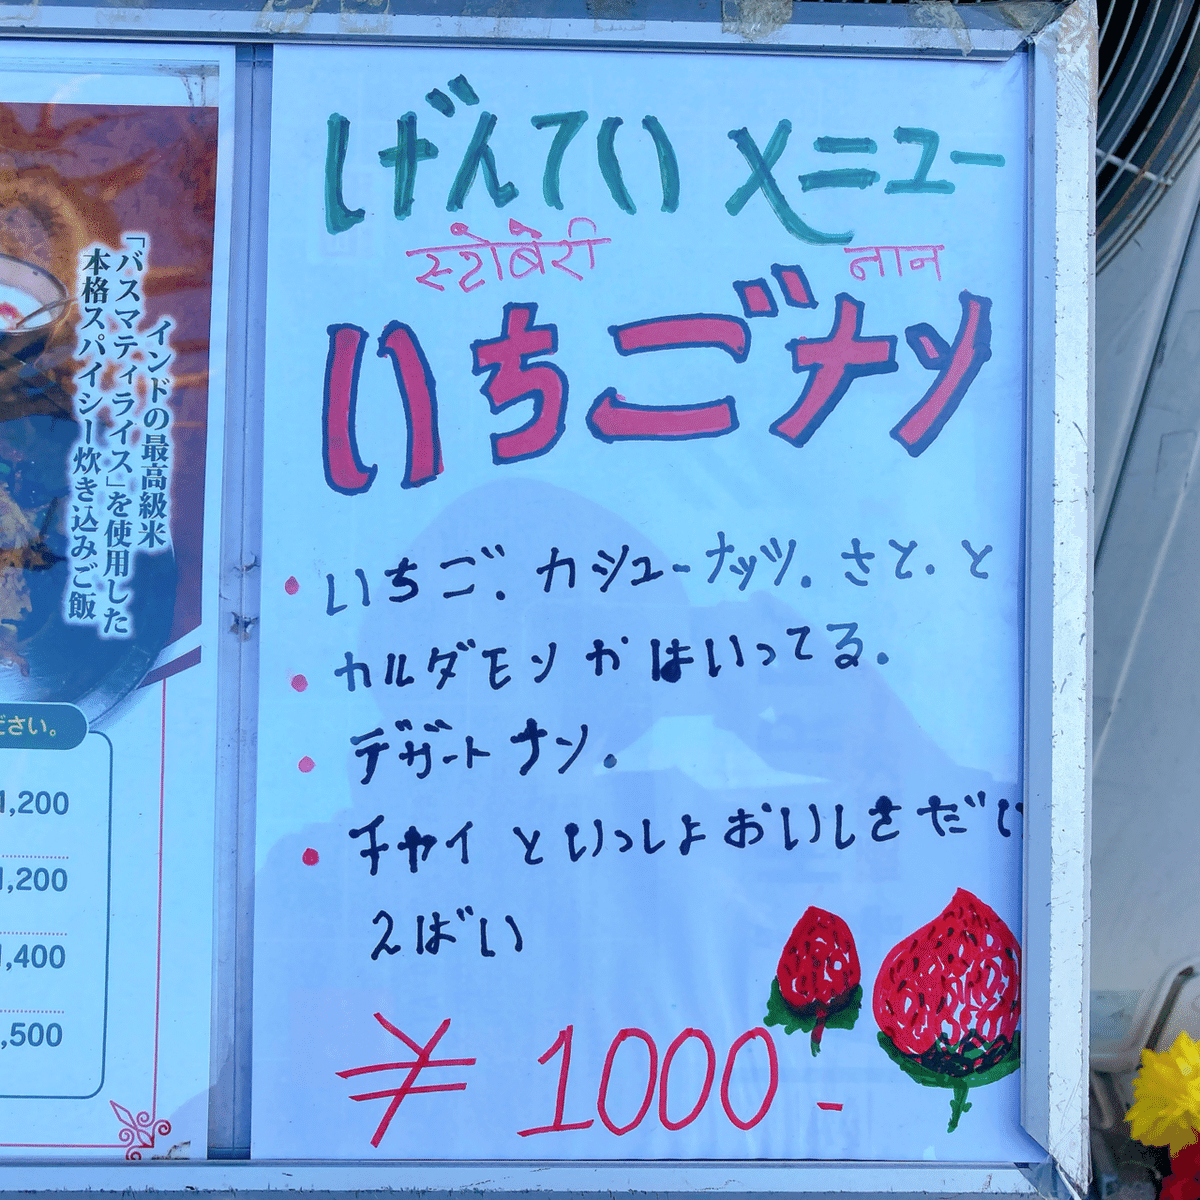 げんてい メニュー
स्टोबेरी नान
いちごナン
・いちご. カシューナッツ. さと. と
・カルダモン か はいってる.
・デザート ナン.
・チャイ といっしょ おいしさ だい
えばい
¥ 1000.-
インドの最高級米
「バスマティライス」を使用した
本格スパイシー炊き込みご飯
ださい。
1,200
1,200
1,400
,500